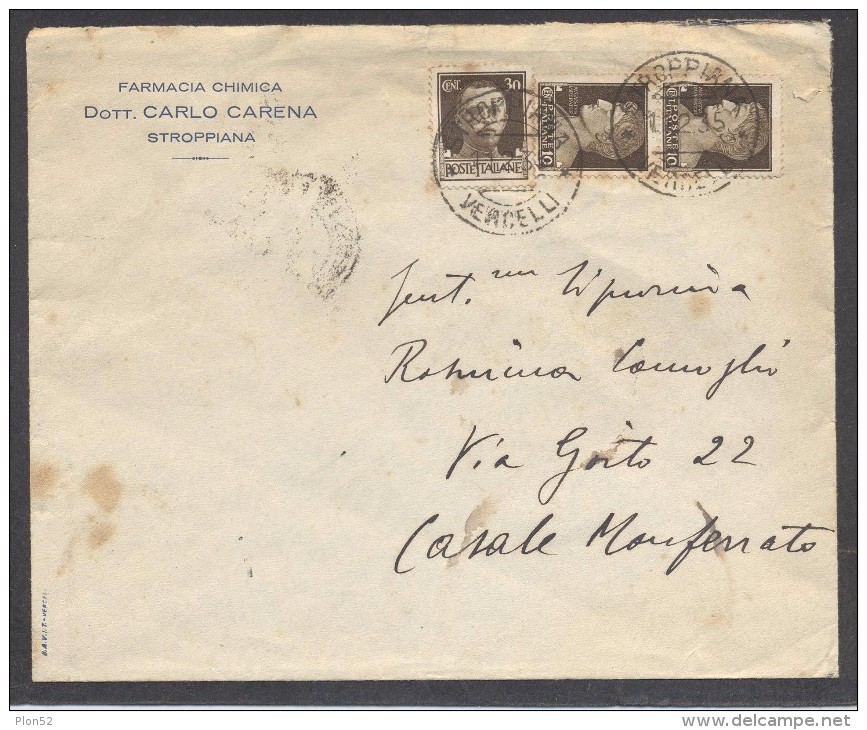 FARMACIA CHIMICA
DOTT. CARLO CARENA
STROPPIANA
CENT. 30
POSTE ITALIANE
POSTE ITALIANE
C. 10
POSTE ITALIANE
C. 10
VERCELLI
STROPPIANA
VERCELLI
Gent.
Via Goito 22
Casale Monferrato
Plon52
delcampe.net